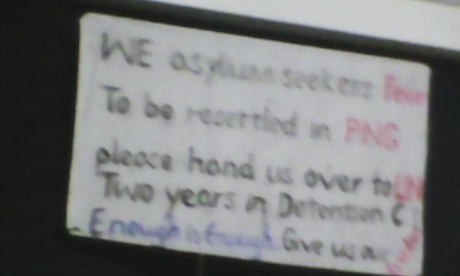 WE asylum seekers Fear
To be resettled in PNG
please hand us over to UN
Two years in Detention C
Enough is Enough. Give us a